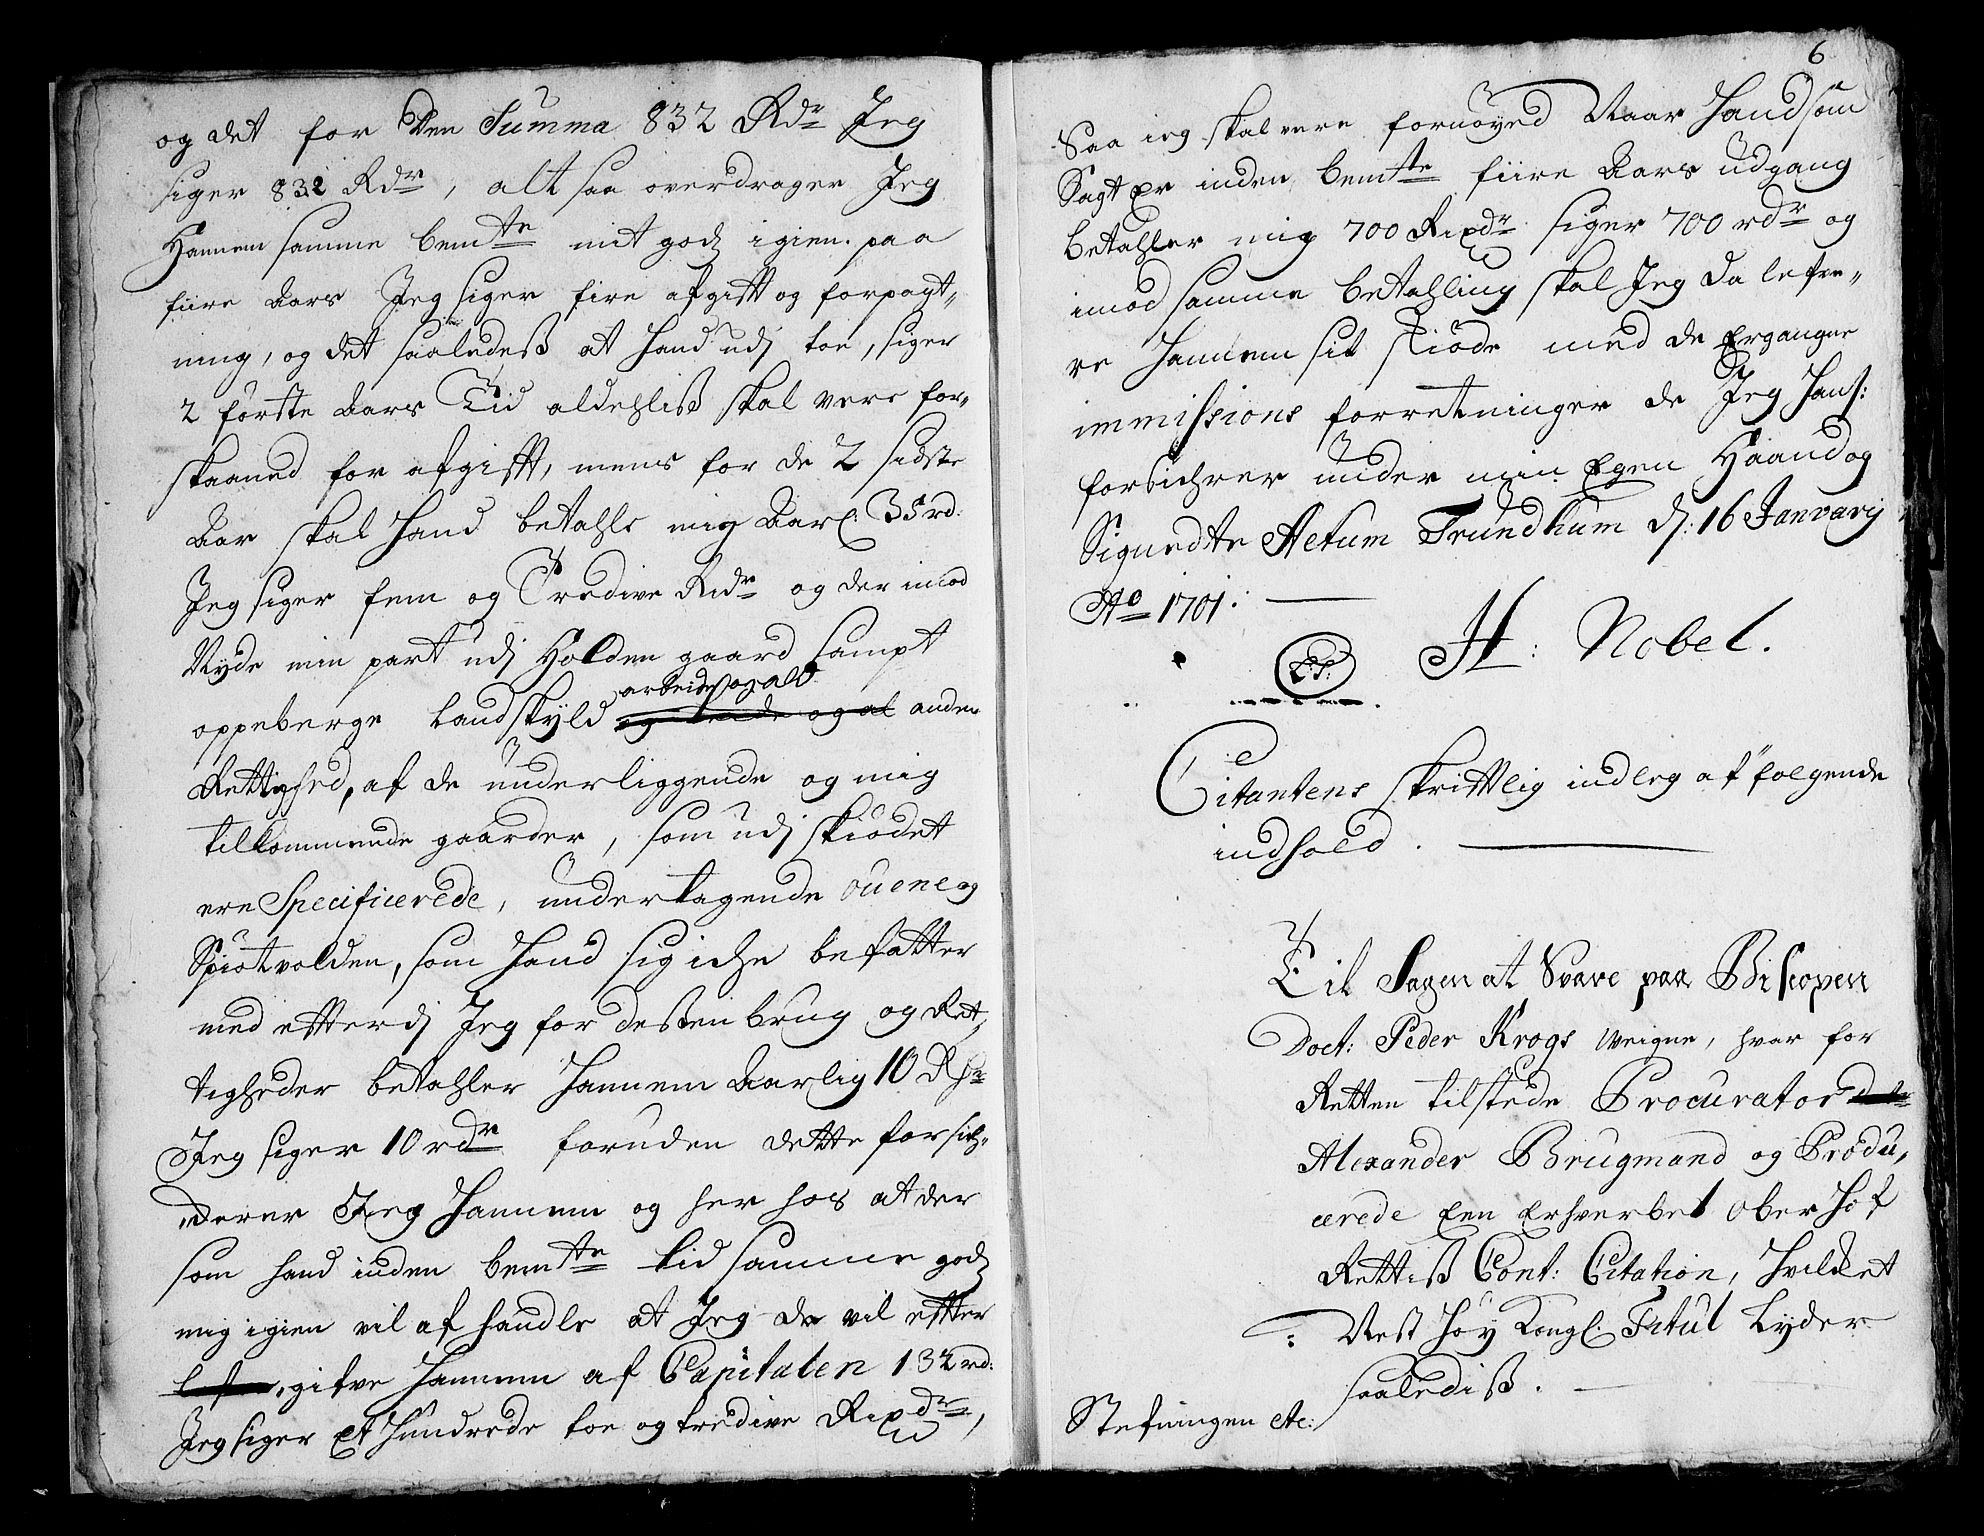 og det for den Summa 832 Rdr Jeg
siger 832 Rdr, alt saa overdrager Jeg
Hannem samme bemte mit godz igien paa
fiire Aars Jeg siger fire afgifft og forpagt„
ning, og det saaledeß at hand udj toe, siger
2 förste Aars Tid aldehliß skal vere for„
skaaned for afgifft, mens for de 2 sidste
Aar skal hand betahle mig Aarl: 35 rd:
Jeg siger fem og Tredive Rdr og der imod
Nyde min part udj Holden gaard sampt
oppeberge Landskyld arbeide og ald anden
Rettighed, af de underliggende og mig
tilkommende gaarder, som udj skiödet
ere Specificerede, undertagende ouene og
Spiötvolden, som hand sig iche befatter
med efftterdj Jeg for dessen brug og Ret„
tigheder betahler hannem Aarlig 10 Rdr
Jeg siger 10 rdr foruden dette forsich„
derer Jeg Hannem og her hos at der
som hand inden bemte tid samme godz
mig igien vil af handle at Jeg da vil effter
gifve Hannem af Capitalen 132 rd:
Jeg siger Et Hundrede toe og tredive Rixdr,
6
Saa ieg skal vere fornöyed Naar Hand som
Sagt Er inden bemte fiire Aars udgang
betahler mig 700 Rixdr siger 700 rdr og
imod samme betahling skal Jeg da lefve„
re Hannem sit skiöde med de Ergangne
immissions forretninger de Jeg Hans:
forsichrer under min Egen Haand og
Signedte Actum Trundhum d: 16 Janvarij
Ao 1701:
L:S: H: Nobel.
Citantens skrifftlig indleg af fölgende
indhold.
Til Sagen at Svare paa Biscopen
Doct: Peder Krogs Weigne, hvar for
Retten tilstede Procurator
Alexander Brugmand og Produ„
cerede Een Erhverbet Ober Hof
Rettiß Cont: Citation, Hvilket
Nest Höy Kongl: Titul Lyder
saalediß.
Stefningen etc: